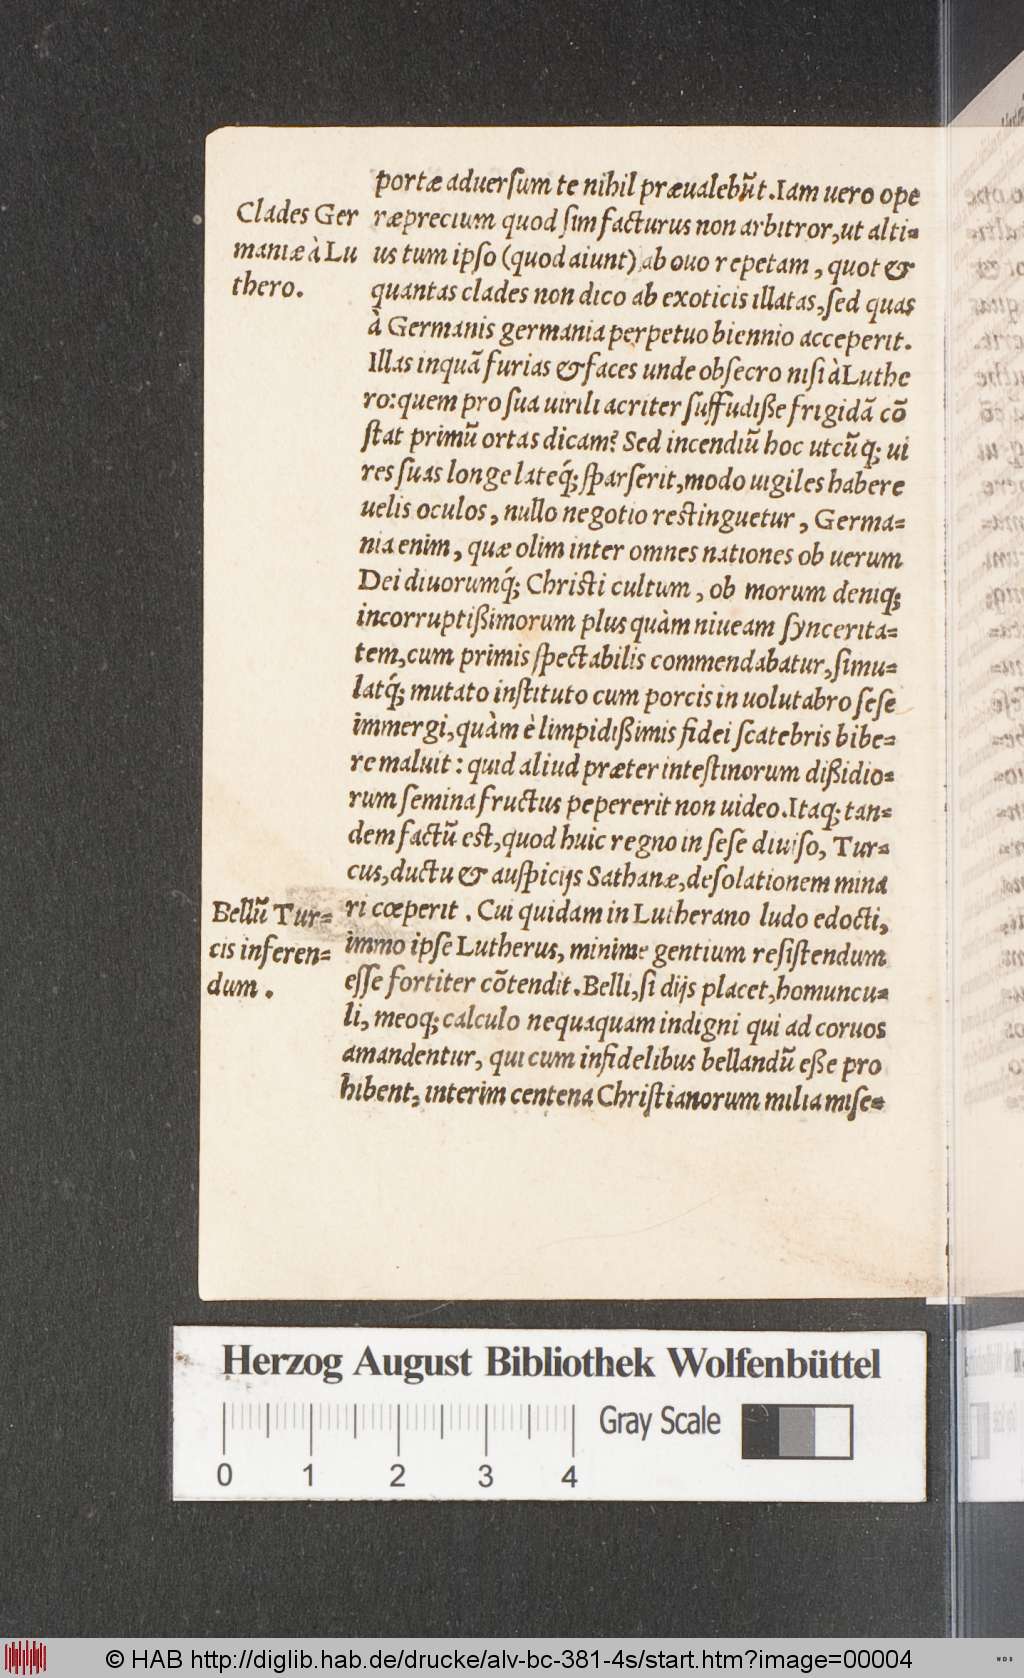 portæ aduersum te nihil præualebũt. Iam uero ope
ræprecium quod sim facturus non arbitror, ut alti=
us tum ipso (quod aiunt) ab ouo repetam, quot &
quantas clades non dico ab exoticis illatas, sed quas
à Germanis germania perpetuo biennio acceperit.
Illas inquã furias & faces unde obsecro nisi à Luthe
ro: quem pro sua uirili acriter suffudiße frigidã cõ
stat primũ ortas dicam? Sed incendiũ hoc utcũq; ui
res suas longe lateq́; sparserit, modo uigiles habere
uelis oculos, nullo negotio restinguetur, Germa=
nia enim, quæ olim inter omnes nationes ob uerum
Dei diuorumq́; Christi cultum, ob morum deniq;
incorruptißimorum plus quàm niueam synceritа=
tem, cum primis spectabilis commendabatur, simu=
latq́; mutato instituto cum porcis in uolutabro sese
immergi, quàm è limpidißimis fidei scatebris bibe=
re maluit: quid aliud præter intestinorum dißidio=
rum semina fructus pepererit non uideo. Itaq; tan=
dem factũ est, quod huic regno in sese diuiso, Tur=
cus, ductu & auspicijs Sathanæ, desolationem mina
ri cœperit. Cui quidam in Lutherano ludo edocti,
immo ipse Lutherus, minime gentium resistendum
esse fortiter cõtendit. Belli, si dijs placet, homuncu=
li, meoq; calculo nequaquam indigni qui ad coruos
amandentur, qui cum infidelibus bellandũ eße pro
hibent, interim centena Christianorum milia mise=
Clades Ger
maniæ à Lu
thero.
Bellũ Tur=
cis inferen=
dum.
Herzog August Bibliothek Wolfenbüttel
Gray Scale
0 1 2 3 4
© HAB http://diglib.hab.de/drucke/alv-bc-381-4s/start.htm?image=00004